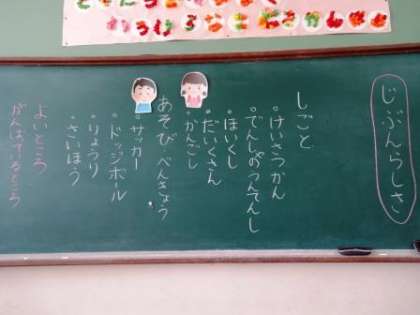 じぶんらしさ
しごと
・けいさつかん
・でんしゃのうんてんし
・ほいくし
・だいくさん
・かんごし
あそび べんきょう
・サッカー
・ドッジボール
・りょうり
・さいほう
よいところ
がんばっているところ